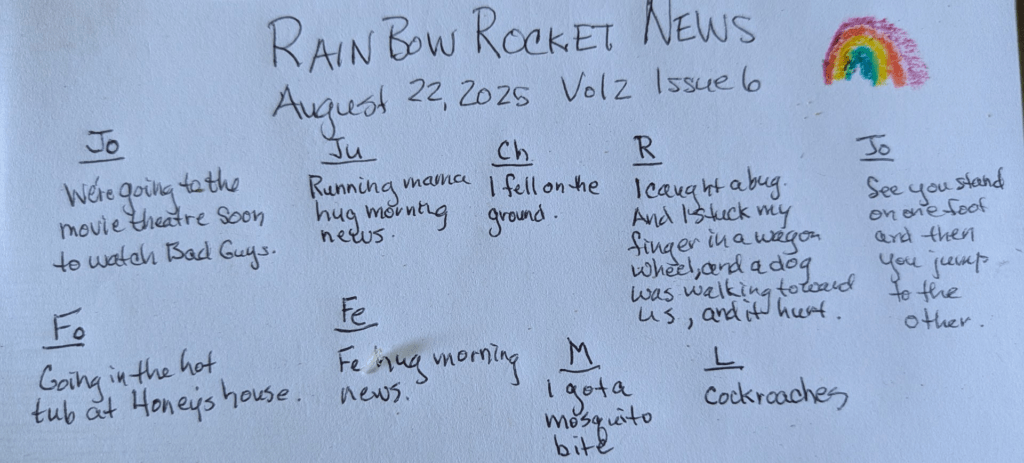 RAINBOW ROCKET NEWS
August 22, 2025 Vol 2 Issue 6
Jo
We're going to the
movie theatre soon
to watch Bad Guys.
Ju
Running mama
hug morning
news.
Ch
I fell on the
ground.
R
I caught a bug.
And I stuck my
finger in a wagon
wheel, and a dog
was walking toward
us, and it hurt.
Jo
See you stand
on one foot
and then
you jump
to the
other.
Fo
Going in the hot
tub at Honey's house.
Fe
Fe hug morning
news.
M
I got a
mosquito
bite
L
Cockroaches